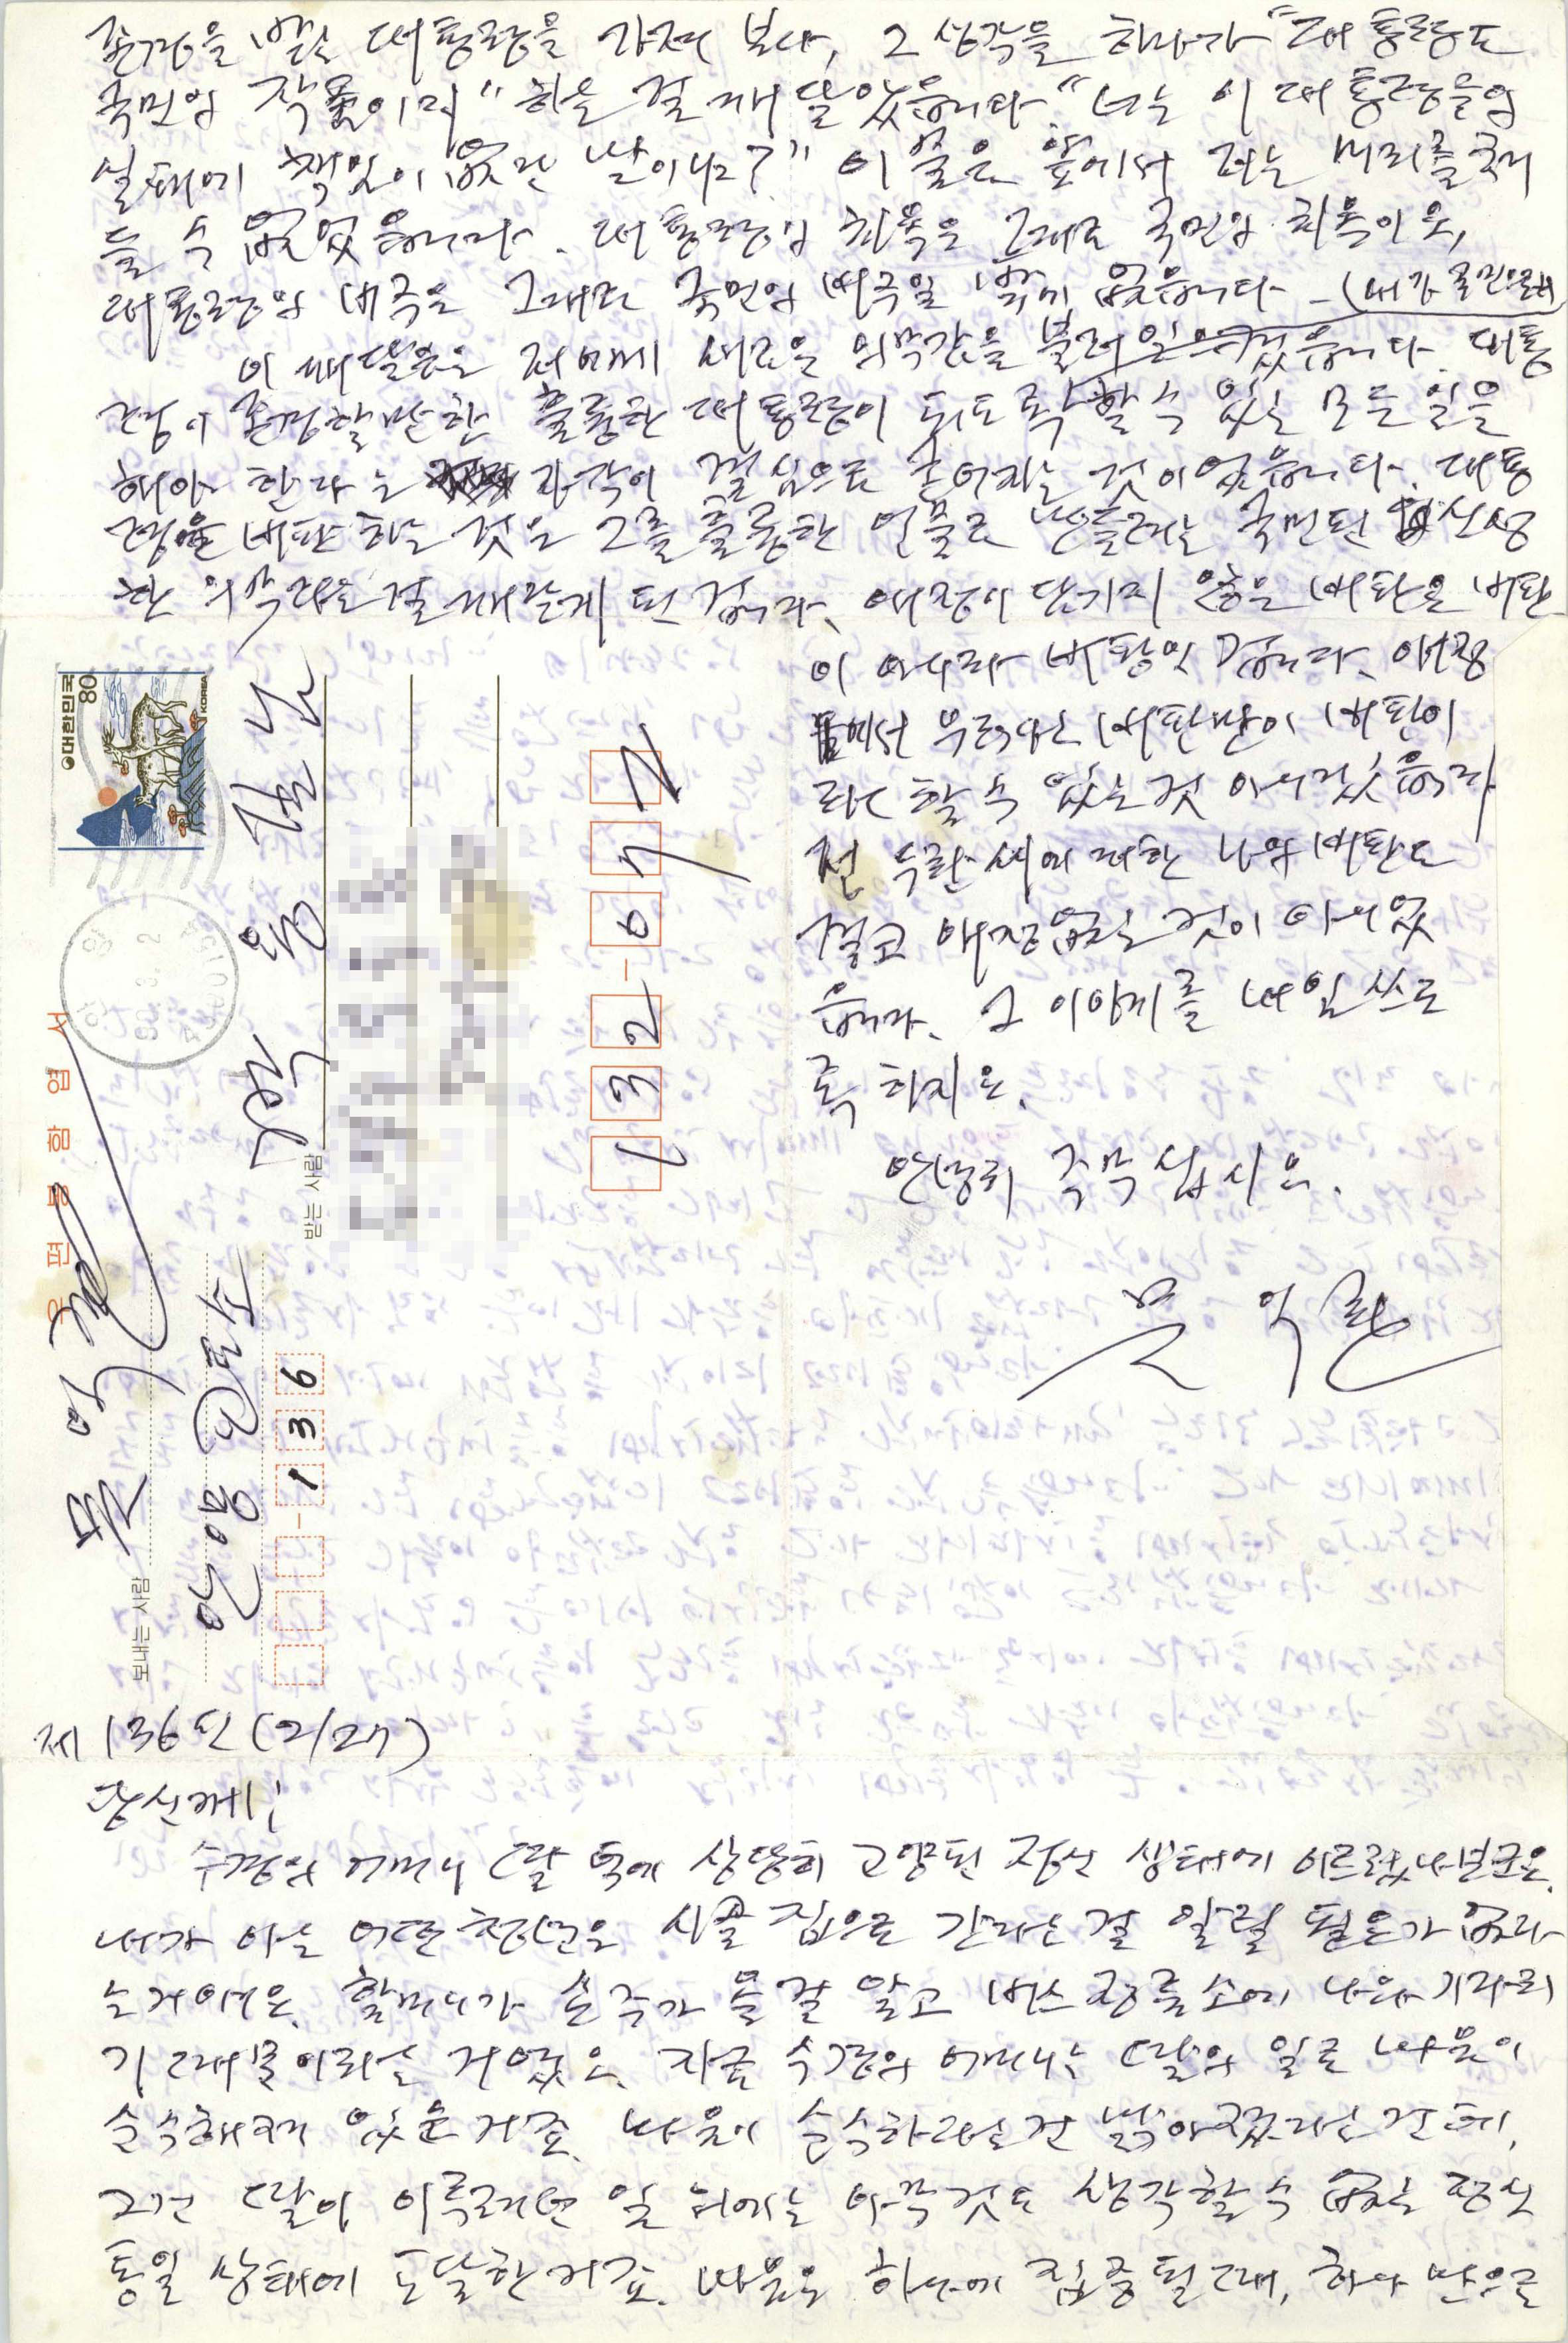 존경을 받는 대통령을 가져 보나, 그 생각을 하다가 "대통령도
국민의 작품이라" 하는 걸 깨달았습니다. "너는 이 대통령들의
실패에 책임이 없단 말이냐?" 이 물음 앞에서 저는 머리를 쳐
들 수 없었습니다. 대통령의 치욕은 그대로 국민의 치욕이요,
대통령의 비극은 그대로 국민의 비극일 밖에 없습니다. (내가 국민으로서)
이 깨달음은 저에게 새로운 의무감을 불러 일으켰습니다. 대통
령이 존경할 만한 훌륭한 대통령이 되도록 할 수 있는 모든 일을
해야 한다는 자각이 결심으로 굳어지는 것이었습니다. 대통
령을 비판하는 것은 그를 훌륭한 인물로 만들려는 국민된 신성
한 의무라는 걸 깨닫게 된 겁니다. 애정이 담기지 않은 비판은 비판
이 아니라 비방인 겁니다. 애정
에서 우러나는 비판만이 비판이
라 할 수 있는 것 아니겠습니까
전 두환 씨에 대한 나의 비판도
결코 애정없는 것이 아니었
습니다. 그 이야기를 내일 쓰도
록 하지요.
안녕히 주무십시오.
문 익환
대한민국 KOREA
80
안양
90. 3. 2
ANYANG
봉함우편
보내는 사람
문 익환
안양 교도소
136
받는 사람
박 용길 님
132-072
제 136 신 (2/27)
당신께!
수경의 어머니 딸 덕에 상당히 고양된 정신 상태에 이르렀나 보군요.
내가 아는 어떤 청년은 시골 집으로 간다는 걸 알릴 필요가 없다
는 거예요. 할머니가 손주가 올 걸 알고 버스 정류소에 나와 기다리
기 때문이라는 거였소. 지금 수경의 어머니는 딸의 일로 마음이
순수해져 있는 거죠. 마음이 순수하다는 건 맑아졌다는 건데,
그건 딸이 이룩하려던 일 외에는 아무것도 생각할 수 없는 정신
통일 상태에 도달한 거죠. 마음은 하나에 집중될 때, 하나만으로